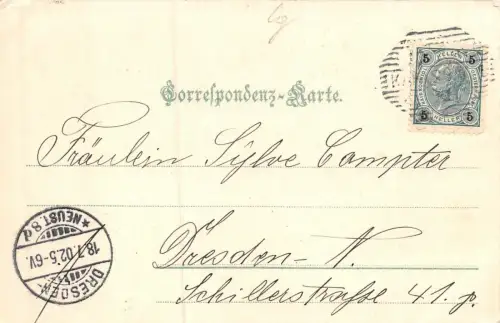 Correspondenz-Karte.
5 5
HELLER
5 5
Fräulein Sylve Compter
Dresden-N.
Schillerstrasse 41. p.
DRESDEN-
18. 02. 5-6V.
*NEUST. 8